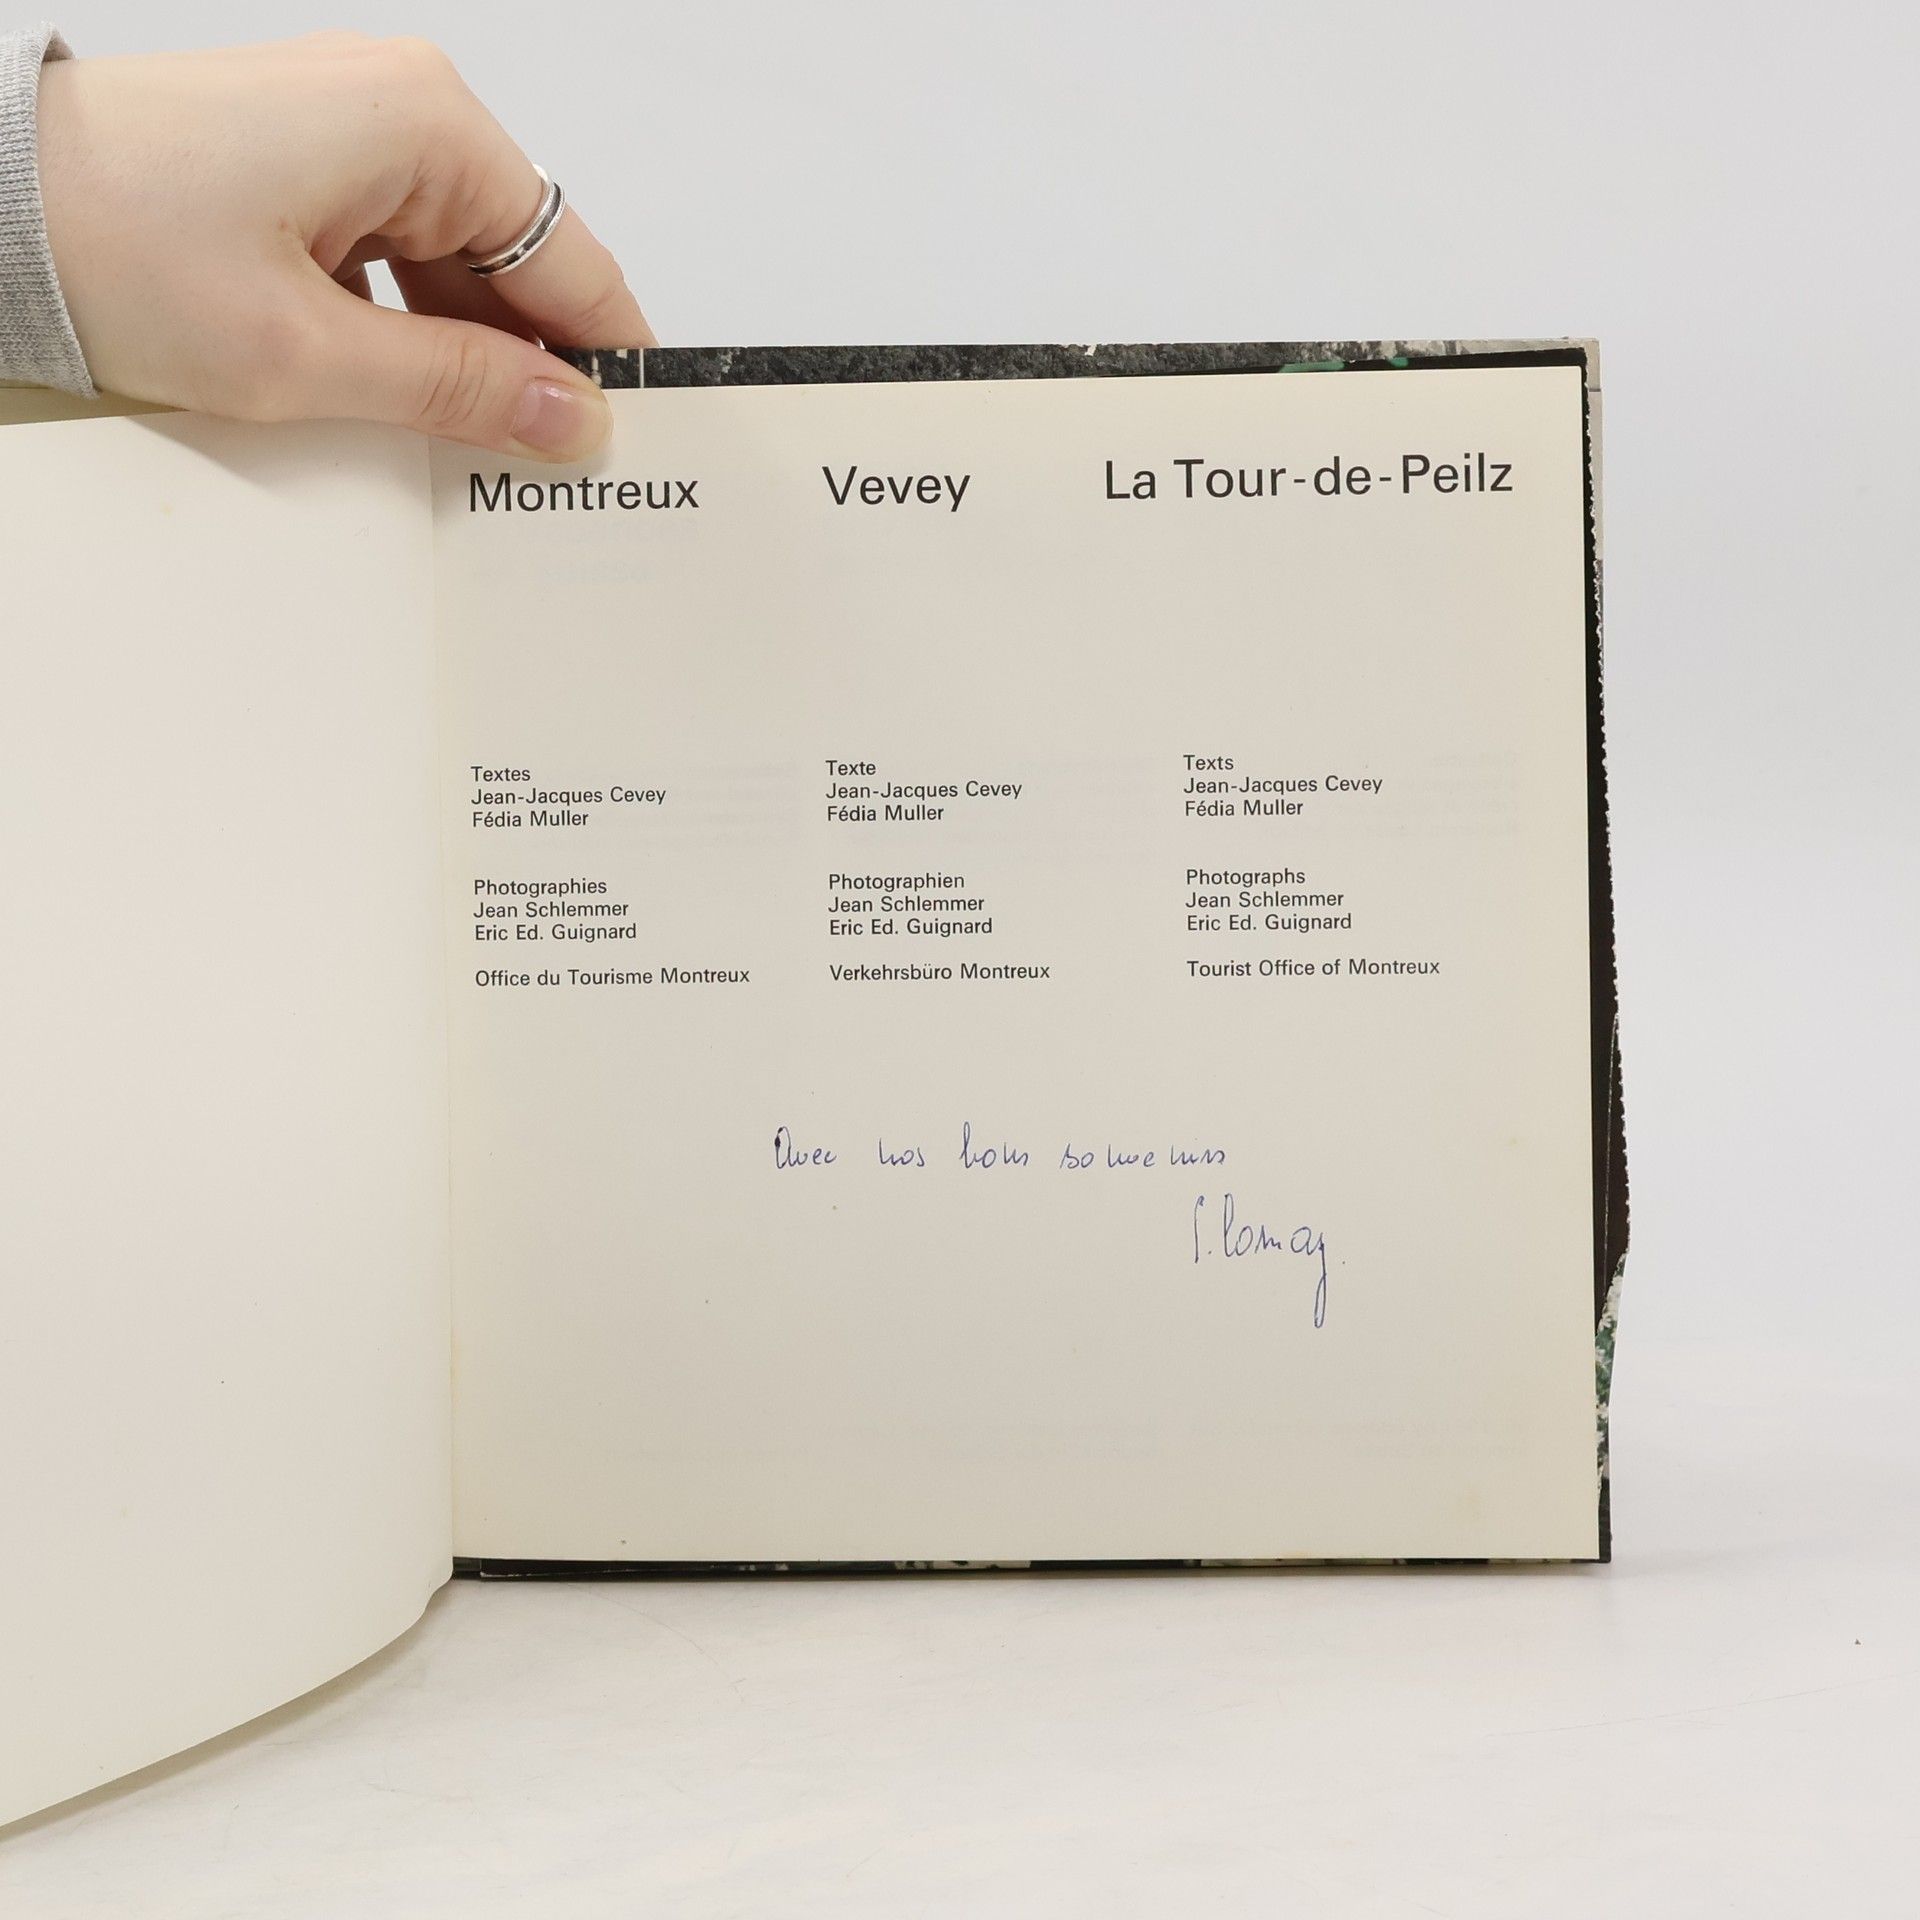 Montreux Vevey La Tour-de-Peilz
Textes
Jean-Jacques Cevey
Fédia Muller
Photographies
Jean Schlemmer
Eric Ed. Guignard
Office du Tourisme Montreux
Texte
Jean-Jacques Cevey
Fédia Muller
Photographien
Jean Schlemmer
Eric Ed. Guignard
Verkehrsbüro Montreux
Texts
Jean-Jacques Cevey
Fédia Muller
Photographs
Jean Schlemmer
Eric Ed. Guignard
Tourist Office of Montreux
Avec nos bons souvenirs